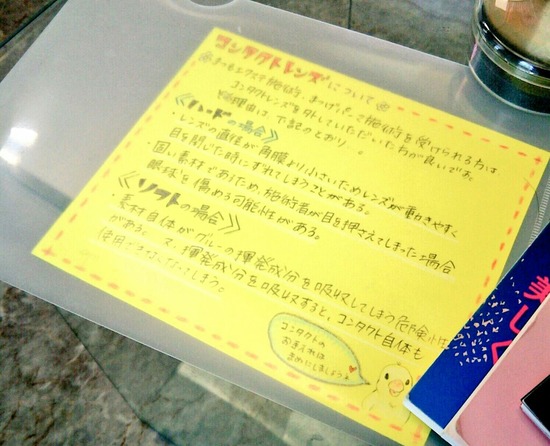 コンタクトレンズについて
まつ毛エクステ施術、まつげパーマ施術を受けられる方は、
コンタクトレンズを外していただいた方が良いです。
理由は、下記のとおり…。
《ハードの場合》
・レンズの直径が角膜より小さいためレンズが動きやすく
目を閉じた時にずれてしまうことがある。
・固い素材であるため、施術者が目を押さえてしまった場合
眼球を傷める可能性がある。
《ソフトの場合》
素材自体がグルーの揮発成分を吸収してしまう危険性
がある。一方、揮発成分を吸収すると、コンタクト自体も
使用できなくなってしまう。
コンタクトの
お手入れは
まめにしましょう